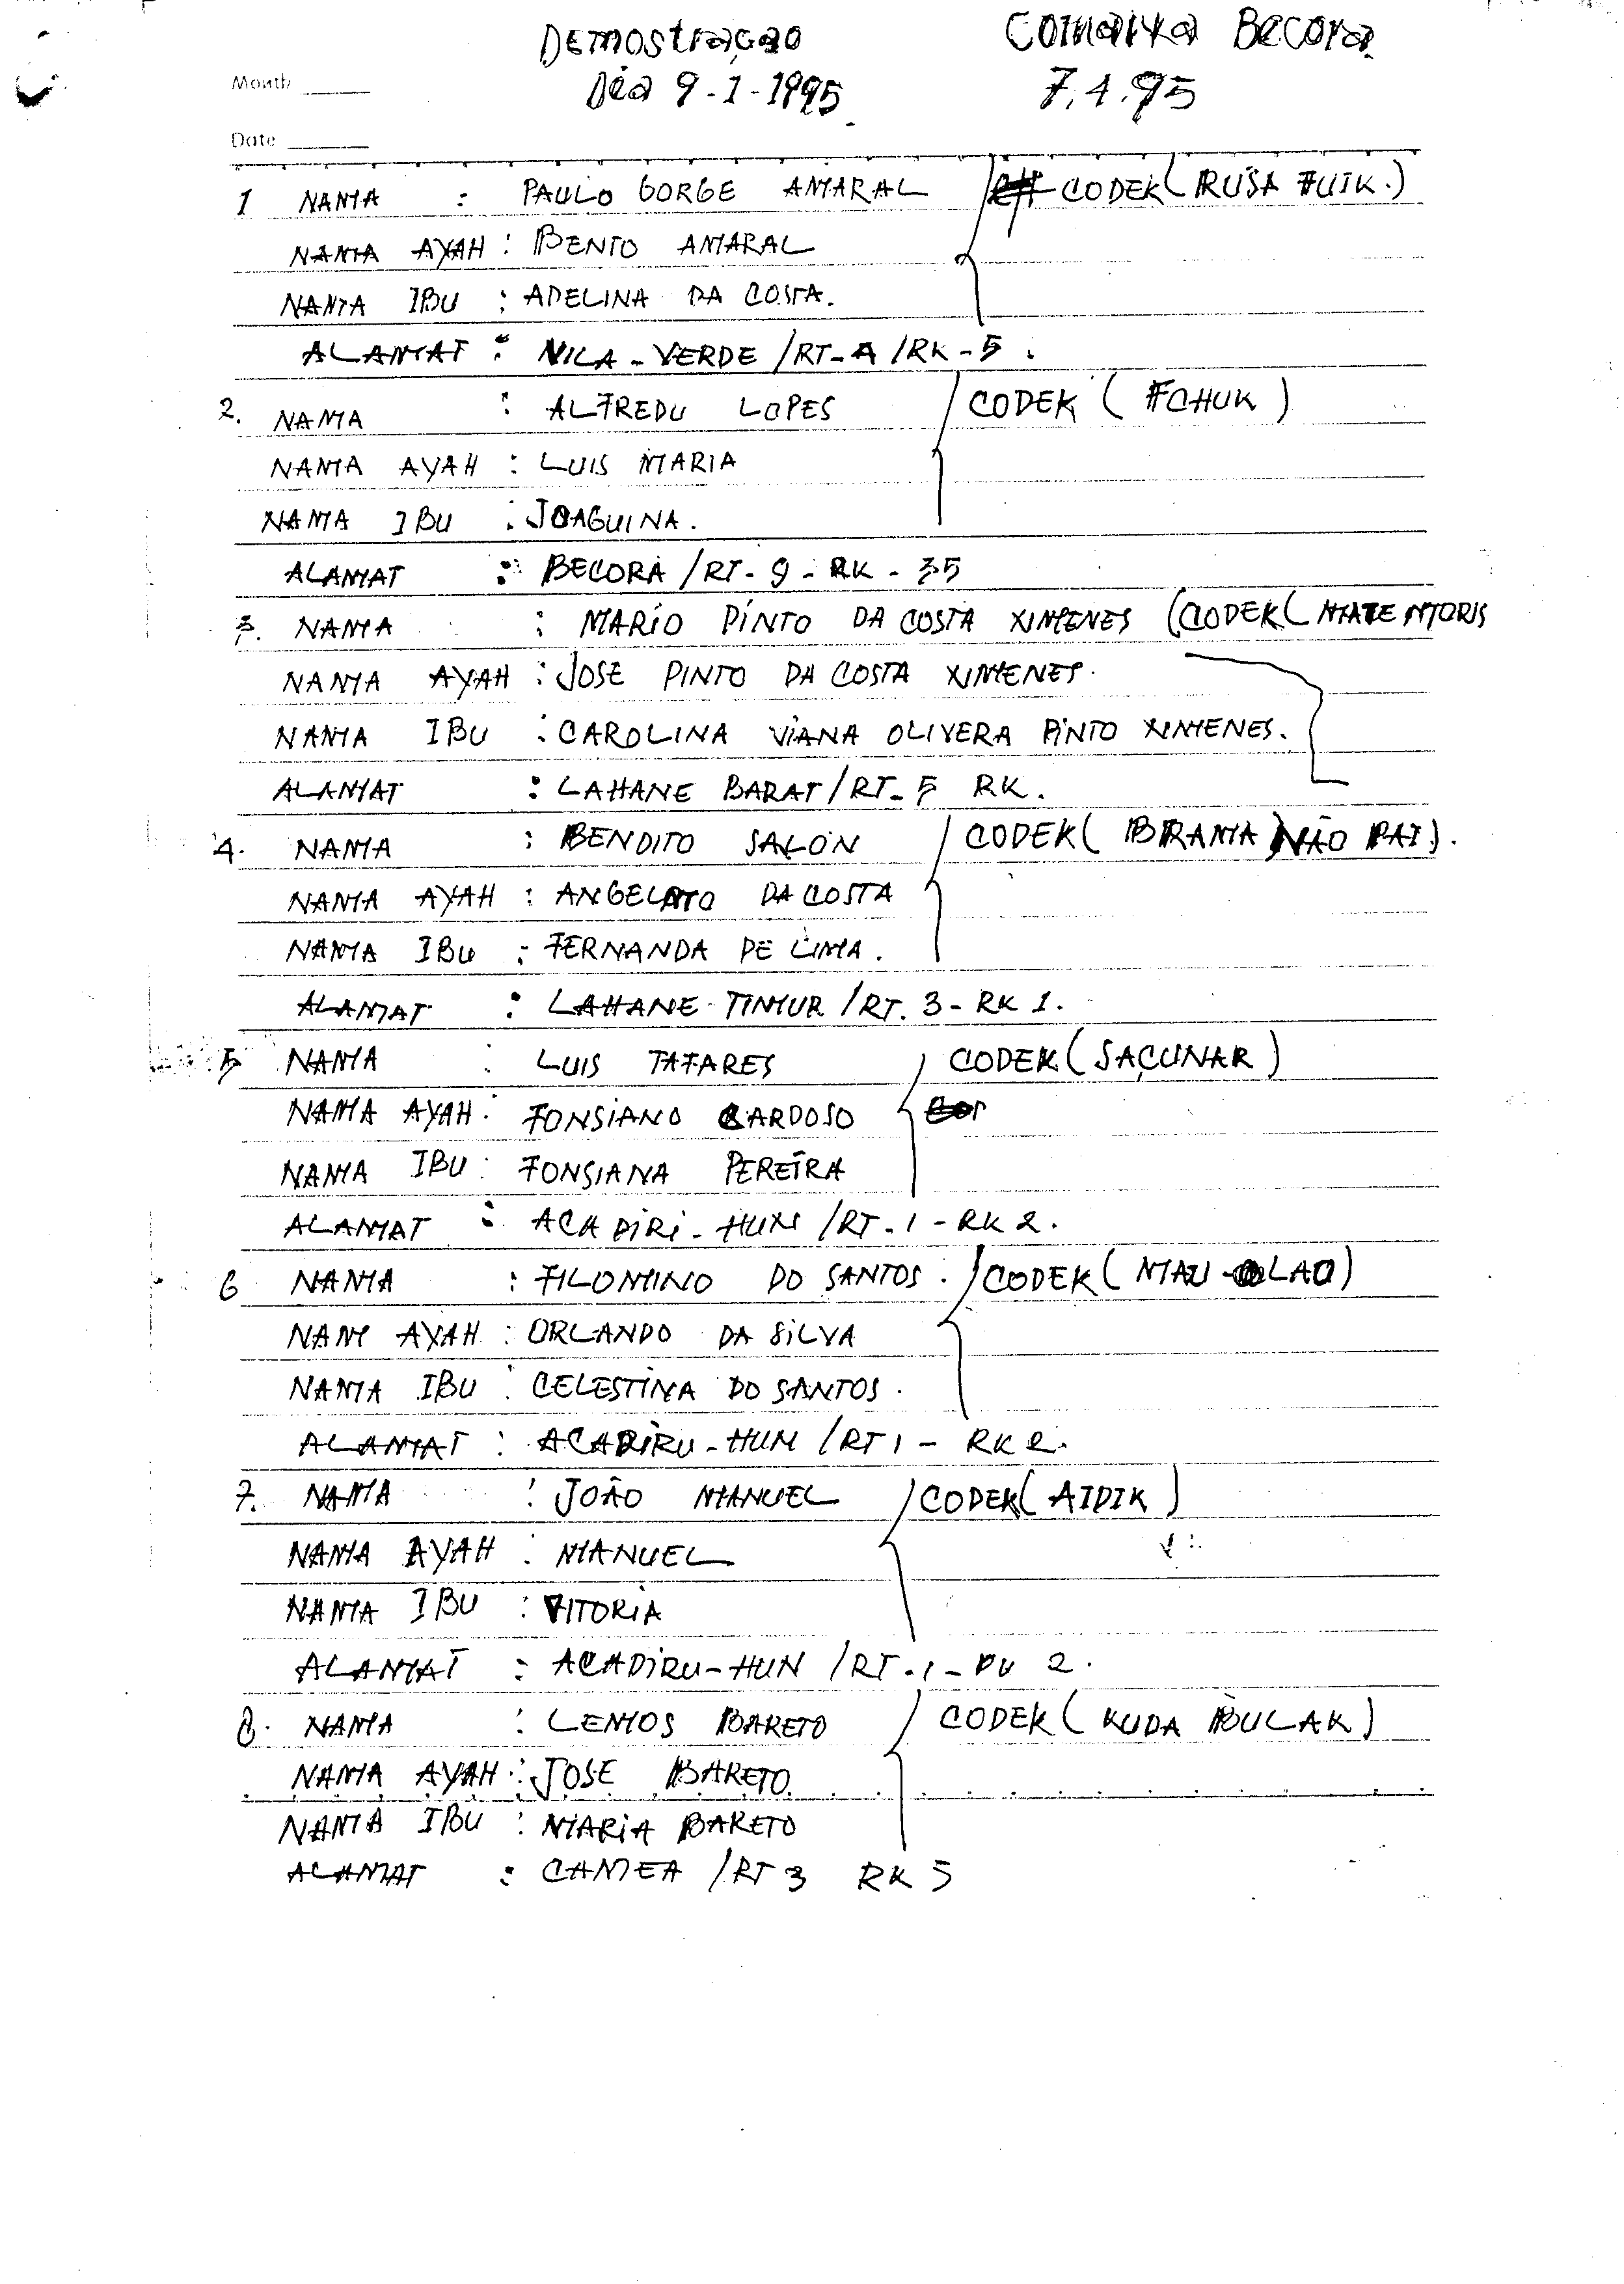 DEMOSTRAÇAO
Dia 9-1-1995
COMARKA BECORA
7.1.95
Month
Date
1 NAMA : PAULO GORGE AMARAL / CODEK (RUSA FUIK.)
NAMA AYAH : BENTO AMARAL
NAMA IBU : ADELINA DA COSTA.
ALAMAT : VILA-VERDE /RT-A /RK-5.
2. NAMA : ALFREDU LOPES / CODEK (FCHUK)
NAMA AYAH : LUIS MARIA
NAMA IBU : JOAGUINA.
ALAMAT : BECORA /RT-9-RK-35
3. NAMA : MARIO PINTO DA COSTA XIMENES (CODEK (MATE MORIS
NAMA AYAH : JOSE PINTO DA COSTA XIMENES.
NAMA IBU : CAROLINA VIANA OLIVERA PINTO XIMENES.
ALAMAT : LAHANE BARAT /RT-5 RK.
4. NAMA : BENDITO SALON / CODEK (BRAMA) NÃO PAI).
NAMA AYAH : ANGELATO DA COSTA
NAMA IBU : FERNANDA DE LIMA.
ALAMAT : LAHANE TIMUR /RT. 3-RK 1.
5 NAMA : LUIS TAFARES / CODEK (SAÇUNAR)
NAMA AYAH : FONSIANO CARDOSO
NAMA IBU : FONSIANA PEREIRA
ALAMAT : ACADIRI-HUN /RT.1-RK 2.
6 NAMA : FILOMINO DO SANTOS. / CODEK (MAU-LAO)
NAM AYAH : ORLANDO DA SILVA
NAMA IBU : CELESTINA DO SANTOS.
ALAMAT : ACADIRU-HUN /RT 1-RK 2.
7. NAMA : JOÃO MANUEL / CODEK (AIDIK)
NAMA AYAH : MANUEL
NAMA IBU : VITORIA
ALAMAT : ACADIRU-HUN /RT.1- 2.
8. NAMA : LEMOS BARETO / CODEK (KUDA BULAK)
NAMA AYAH : JOSE BARETO
NAMA IBU : MARIA BARETO
ALAMAT : CAMEA /RT 3 RK 5